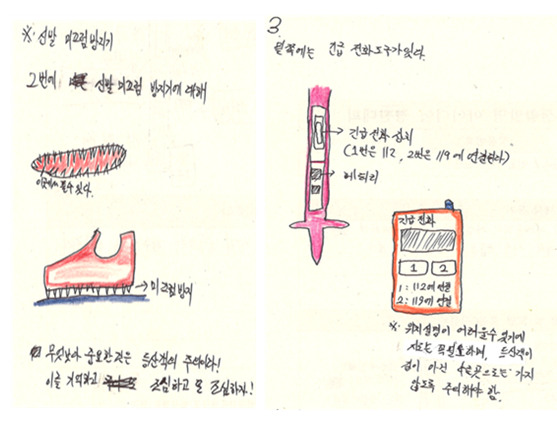 ※ 신발 미끄럼방지기
2번에 신발 미끄럼 방지기에 대해
이곳에서 뺄수 있다.
→미끄럼방지
무엇보다 중요한것은 등산객의 주의이다!
이를 기억하고 조심하고 또 조심하자!
3.
뒷쪽에는 긴급 전화도구가있다.
긴급 전화 장치
(1번은 112, 2번은 119에 연결된다)
→배터리
긴급 전화
1 2
1 : 112에 연결
2 : 119에 연결
※ 위치설명이 어려울수 있기에
지도는 꼭필요하며, 등산객이
길이 아닌 곳으로는 가지
않도록 주의해야 함.